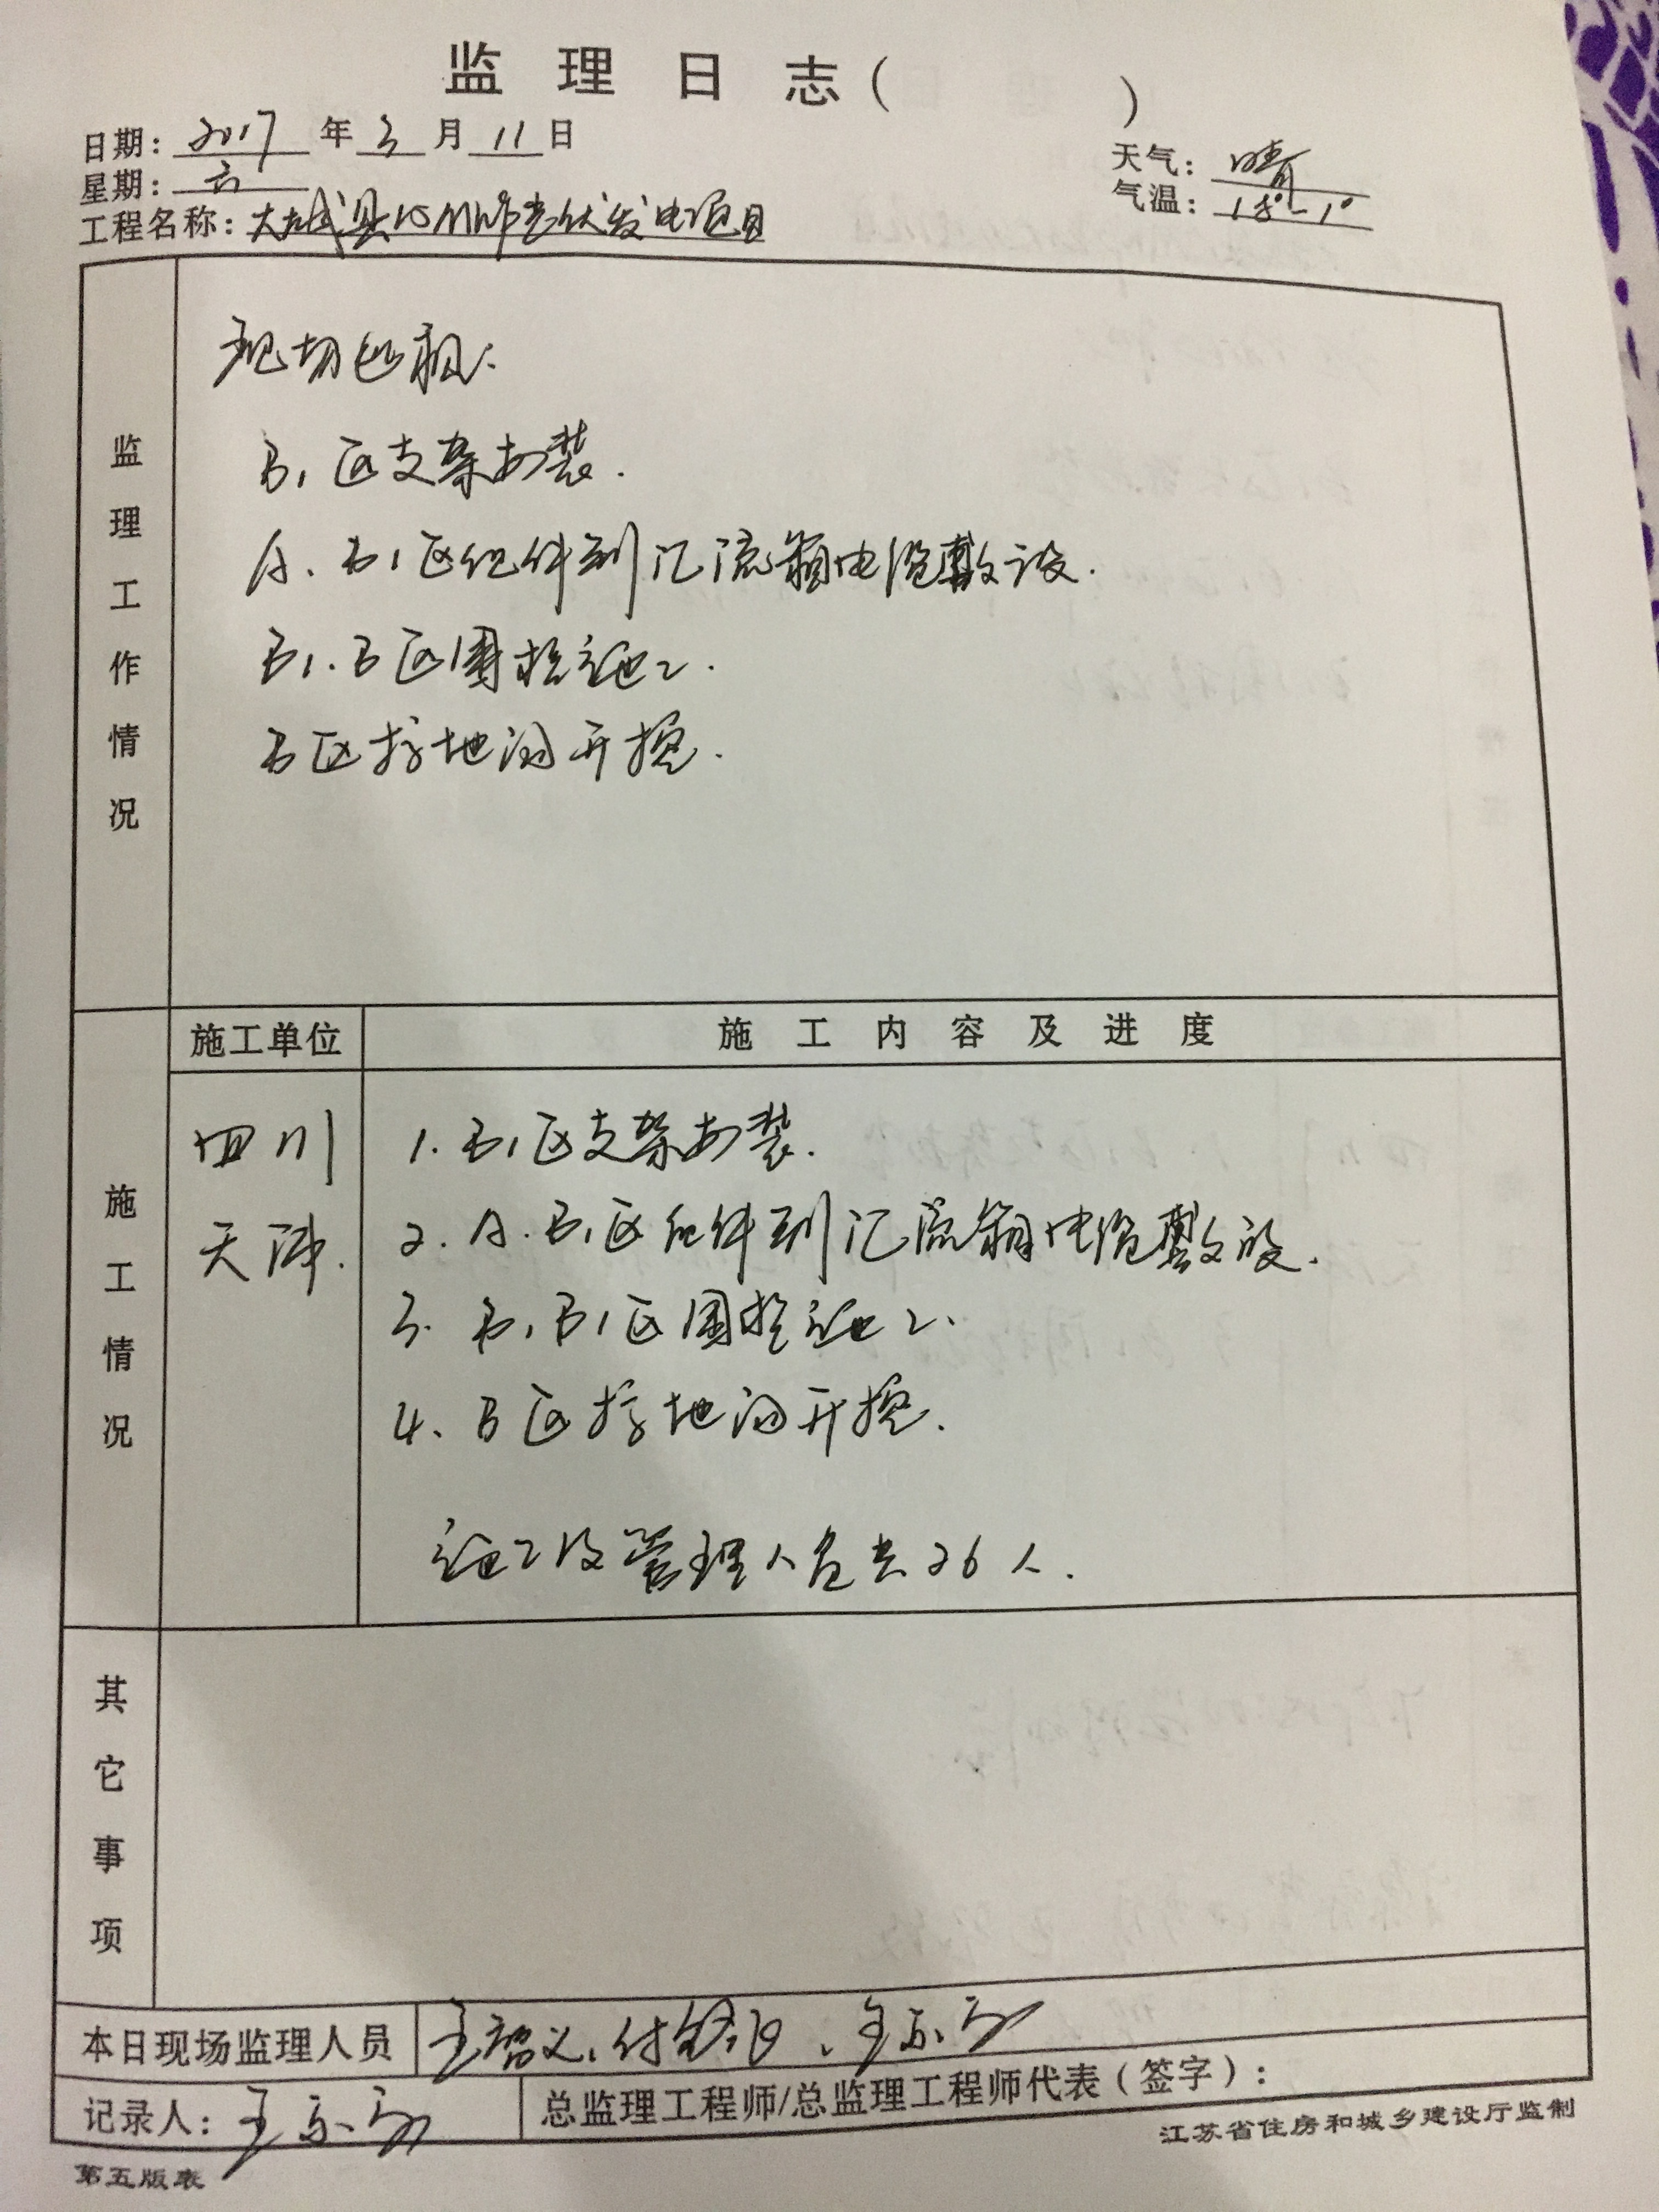 监理日志（ ）
日期：2017年3月11日
星期：六
天气：晴
气温：18°-1°
工程名称：大城县10MW光伏发电项目
监理工作情况
现场巡视：
B1区支架安装.
A、B1区组件到汇流箱电缆敷设.
B1、B区围栏施工.
B区接地沟开挖.
施工单位 施工内容及进度
施工情况
四川
天沛.
1. B1区支架安装.
2. A、B1区组件到汇流箱电缆敷设.
3. B、B1区围栏施工.
4、B区接地沟开挖.
施工及管理人员共26人.
其它事项
本日现场监理人员
记录人：
总监理工程师/总监理工程师代表（签字）：
江苏省住房和城乡建设厅监制
第五版表